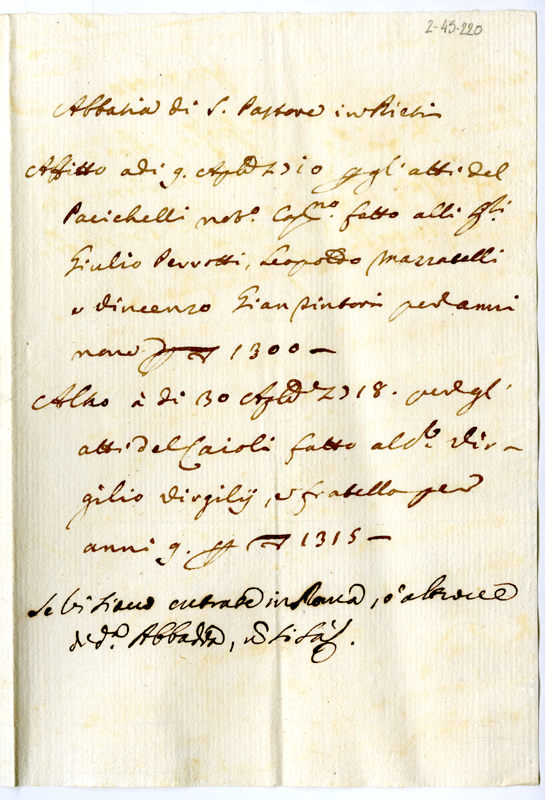 2-45-220
Abbatia di S. Pastore in Rieti
Affitto adi 9. Aple 1710 gl'atti del
Pacichelli not.º fatto alli
Giulio Perrotti, Leopoldo Mazzatelli
e Vincenzo Gian per anni
nove 1300 —
Altro à di 30 Aple 1718. per gl'
atti del Caioli fatto al Vir-
gilio Virgilij, e fratello per
anni 9. 1315 —
Se vi siano entrate in Roma, ò altrove
di d.ª Abbadia,